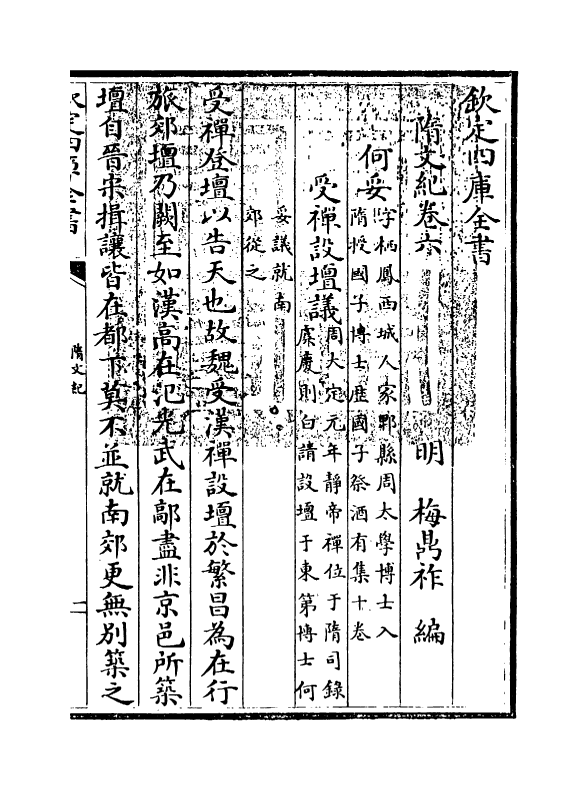 欽定四庫全書
隋文紀卷六
明　梅鼎祚　編
何妥
字栖鳳西城人家郫縣周太學博士入
隋授國子博士歷國子祭酒有集十卷
受禪設壇議
周大定元年靜帝禪位于隋司錄
庾慶則白請設壇于東第博士何
妥議就南
郊從之
受禪登壇以告天也故魏受漢禪設壇於繁昌為在行
旅郊壇乃闕至如漢高在汜光武在鄗盡非京邑所築
壇自晉宋揖讓皆在都下莫不並就南郊更無別築之
欽定四庫全書
隋文紀